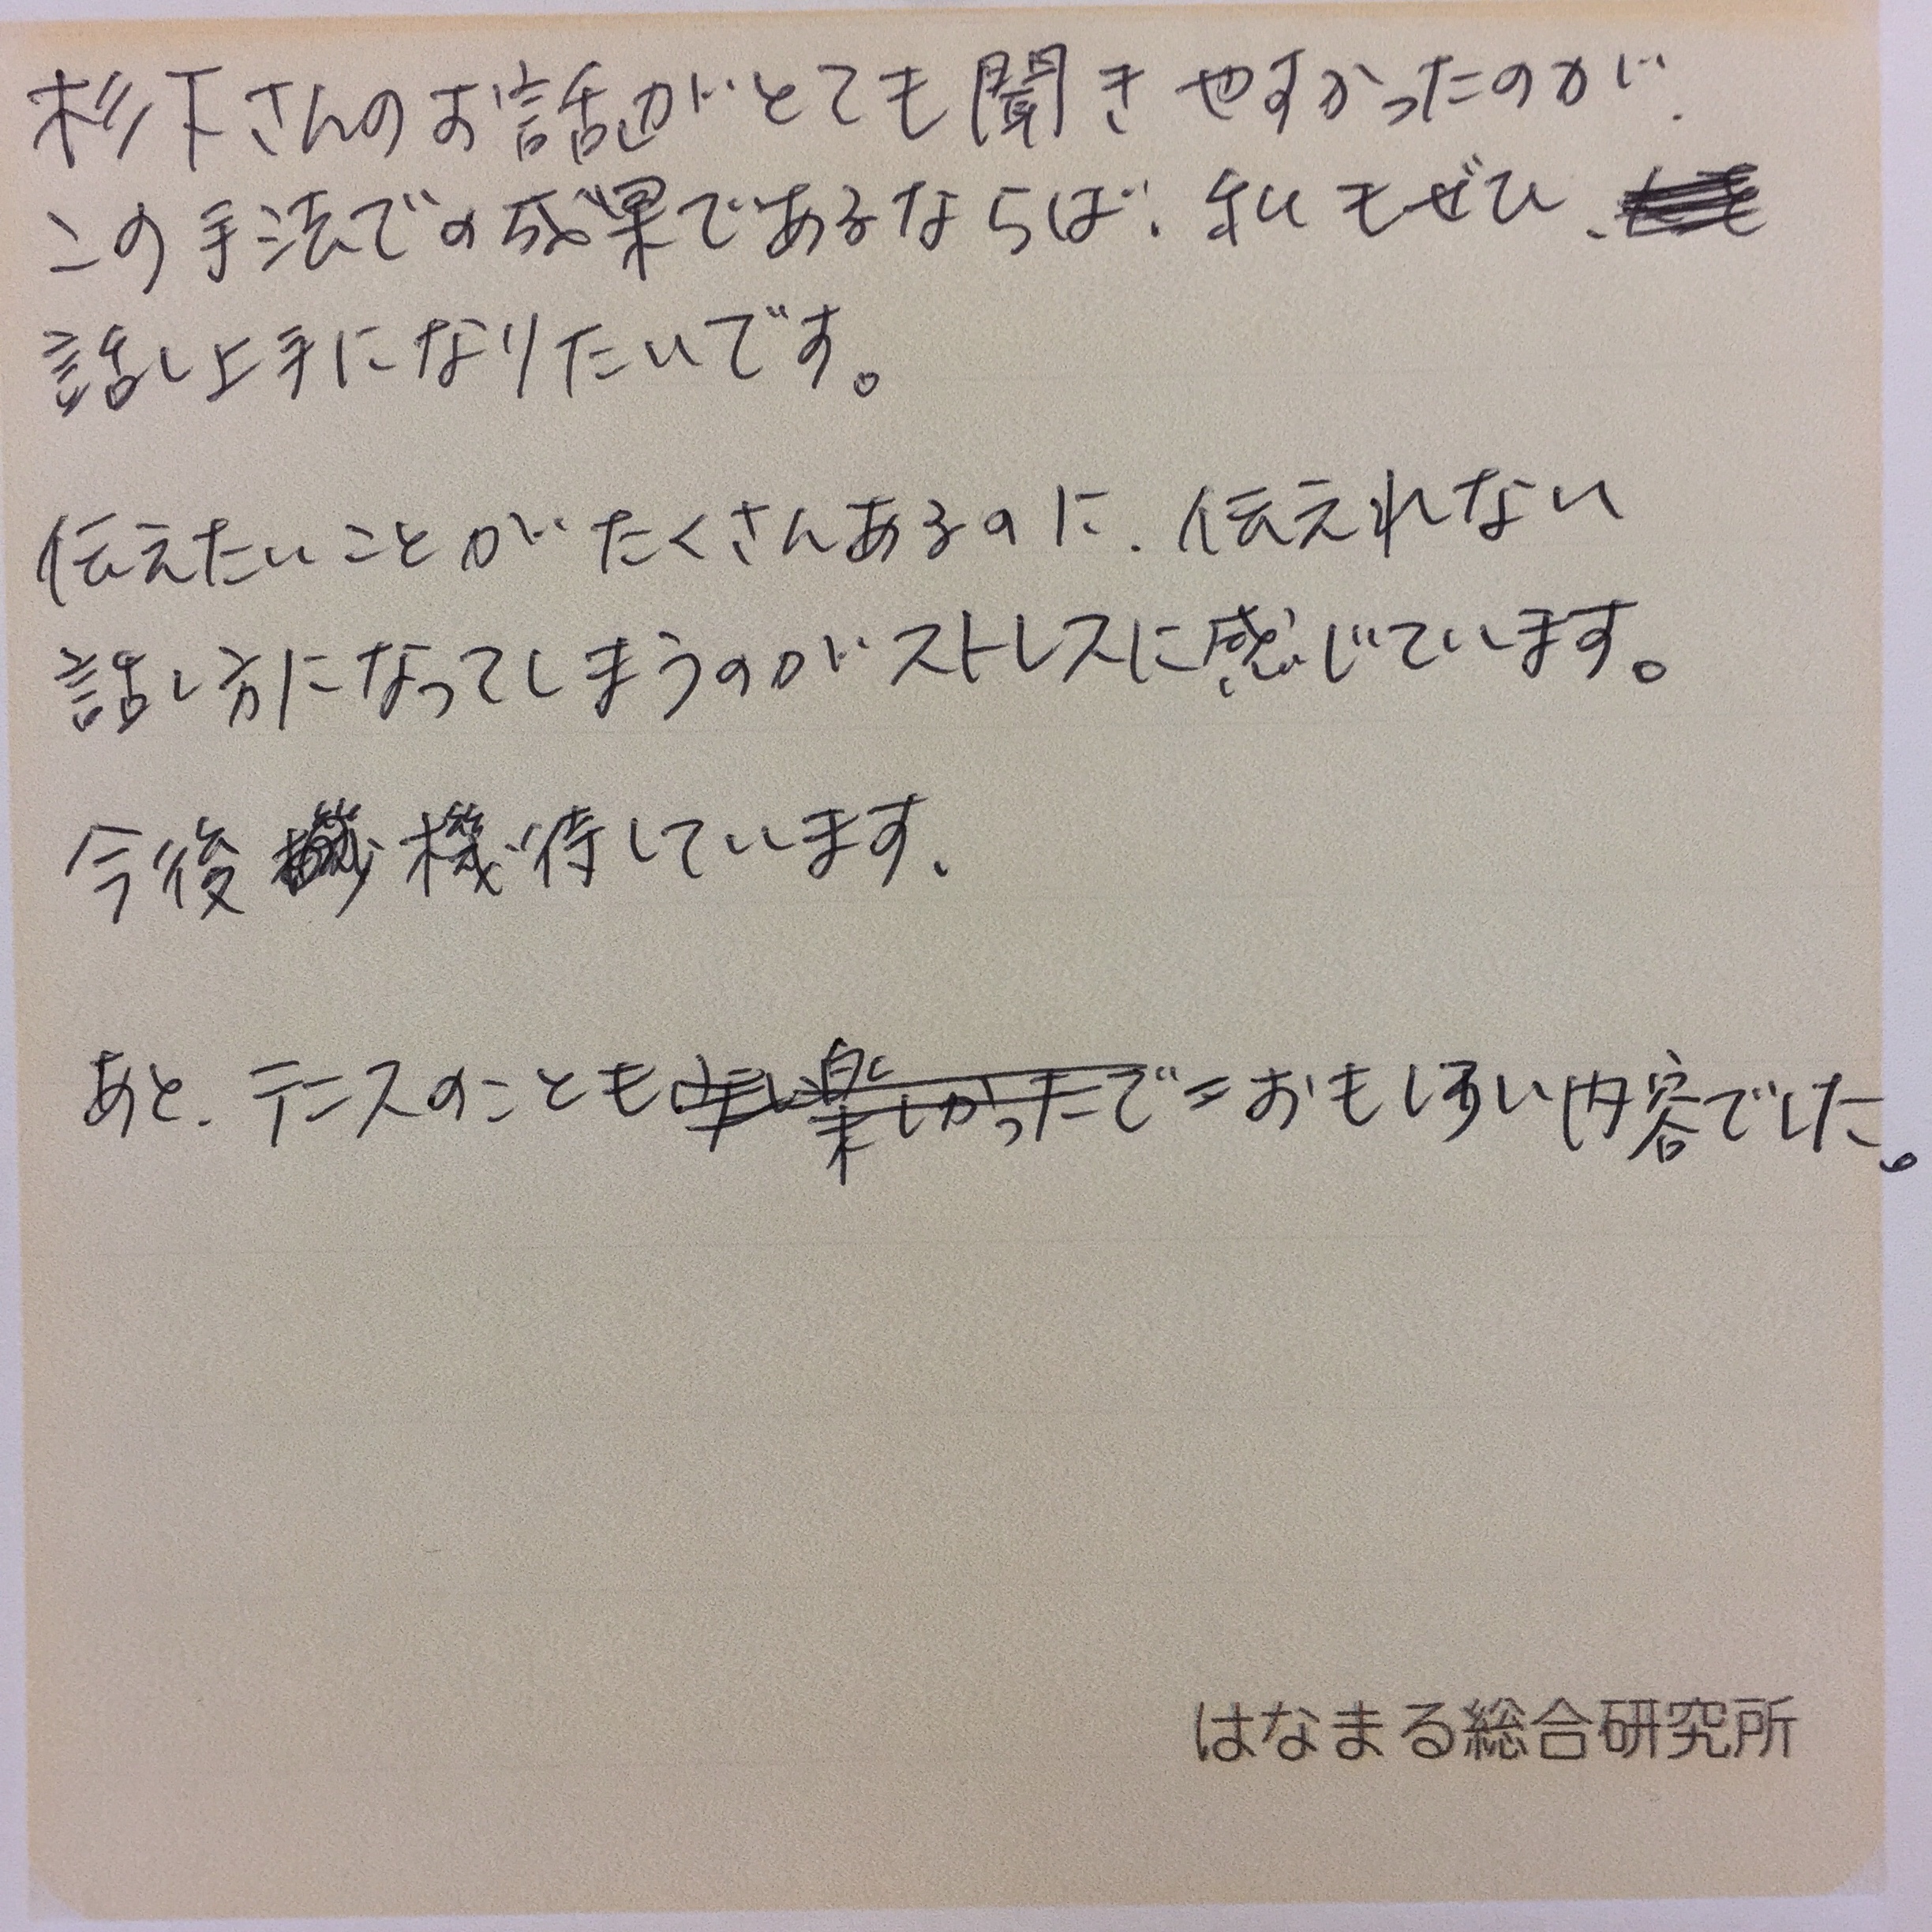 杉下さんのお話がとても聞きやすかったのが、
この手法での成果であるならば、私もぜひ、
話し上手になりたいです。
伝えたいことがたくさんあるのに、伝えれない
話し方になってしまうのがストレスに感じています。
今後機待しています、
あと、テニスのことも楽しかったでおもしろい内容でした。
はなまる総合研究所